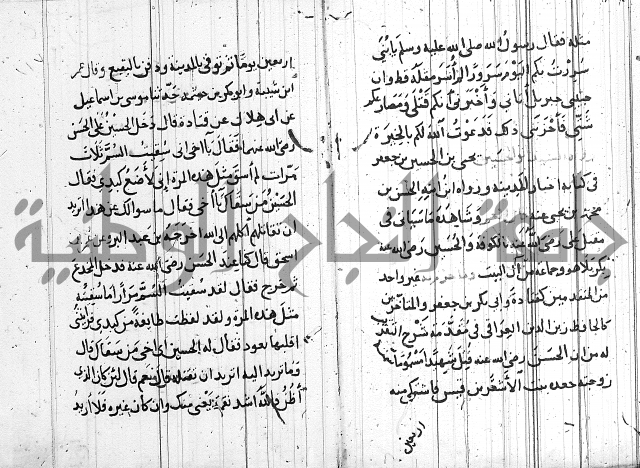 مثله فقال رسول الله صلى الله عليه وسلم يا بني
سررت بكم اليوم سرورا لم أسر مثله قط وان
حبيبي جبريل اتاني واخبرني انكم قتلى ومصارعكم
شتى فاحزنني ذلك فدعوت الله لكم بالخيرة
يحيى بن الحسن بن جعفر
في كتابه اخبار المدينة ورواه ابن ابنه الحسن بن
محمد بن يحيى عنه وشاهده ما سياتي في
مقتل على رضي الله عنه بالكوفة والحسين رضي الله عنه
بكربلا هو وجماعة من ال البيت غير واحد
من المتقدمين كقتادة وابي بكر بن حفص والمتاخرين
كالحافظ زين الدين العراقي في مقدمة شرح التقريب
له من ان الحسن رضي الله عنه قتل شهيدا مسموما
زوجته جعده بنت الأشعث بن قيس فاشتكى منه
اربعين
اربعين يوما ثم توفي بالمدينة ودفن بالبقيع وقال عمر
ابن شبة وابو بكر بن حدثنا موسى بن اسماعيل
عن ابي هلال عن قتادة قال دخل الحسين على الحسن
رضي الله عنهما فقال يا اخي اني سقيت السم ثلاث
مرات لم اسق مثل هذه المرة اني لأضع كبدي فقال
الحسين من سقاك يا أخي فقال ما سوالك عن هذا اتريد
ان تقاتلهم اكلهم الى الله اخرجه بن عبد البر
اسحق قال كنا عند الحسن رضي الله عنه فدخل المخدع
ثم خرج فقال لقد سقيت السم مرارا ما سقيته
مثل هذه المرة ولقد لفظت طايفة من كبدي فرايتني
اقلبها بعود فقال له الحسين اى اخى من سقاك قال
وما تريد اليه اتريد ان تقتله قال نعم قال لئن كان الذي
أظن فالله اشد نقمة وان كان غيره فلا اريد
جامعة الحاج الوطنية